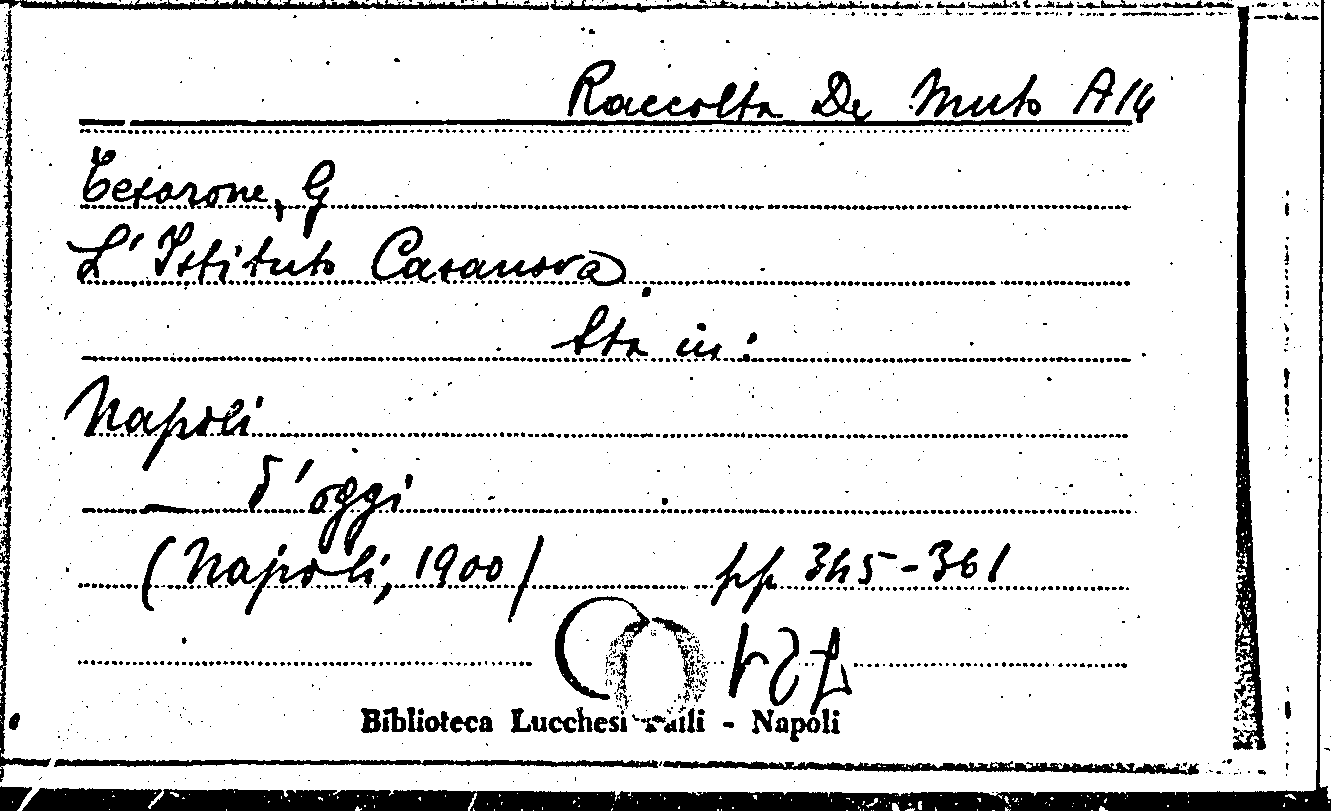 Raccolta De Muto A14
Tesorone, G
L'Istituto Casanova.
Sta in:
Napoli
d'oggi
(Napoli, 1900) pp 345-361
Biblioteca Lucchesi Palli - Napoli